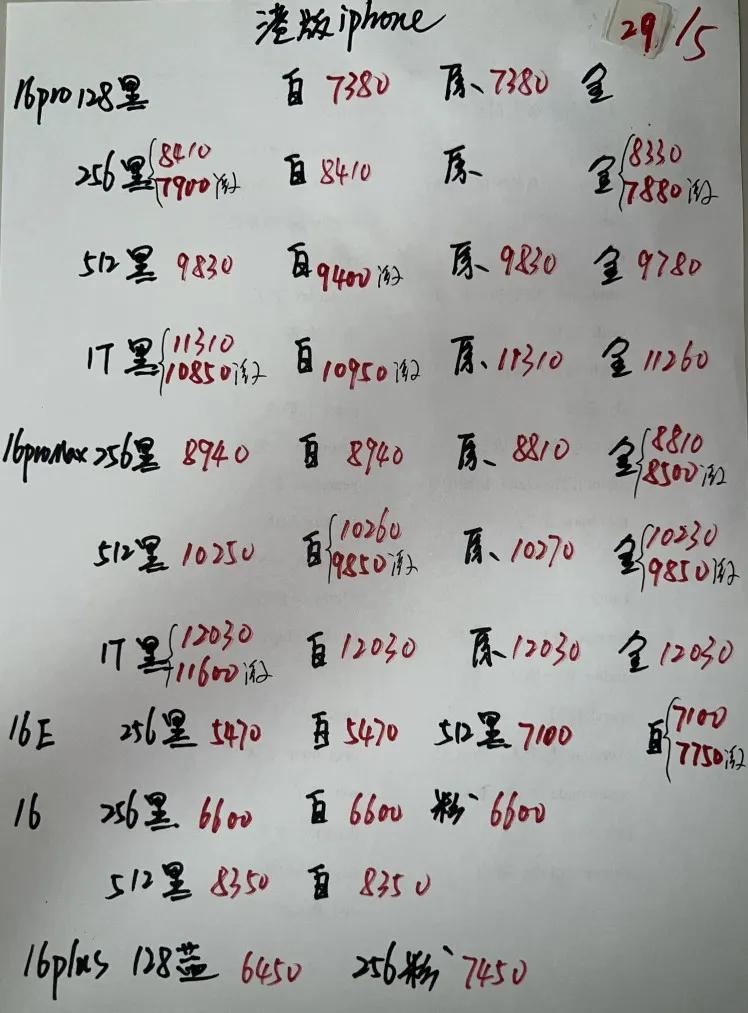 港版iphone 29/5
16pro 128黑 白 7380 原、7380 金
256黑{8410 7900激 白 8410 原、 金{8330 7880激
512黑 9830 白 9400激 原、9830 金 9780
1T 黑{11310 10850激 白 10950激 原、11310 金 11260
16proMax 256黑 8940 白 8940 原、8810 金{8810 8500激
512黑 10250 白{10260 9850激 原、10270 金{10230 9850激
1T 黑{12030 11600激 白 12030 原、12030 金 12030
16E 256黑 5470 白 5470 512黑 7100 白{7100 7750激
16 256黑 6600 白 6600 粉 6600
512黑 8350 白 8350
16plus 128蓝 6450 256粉 7450